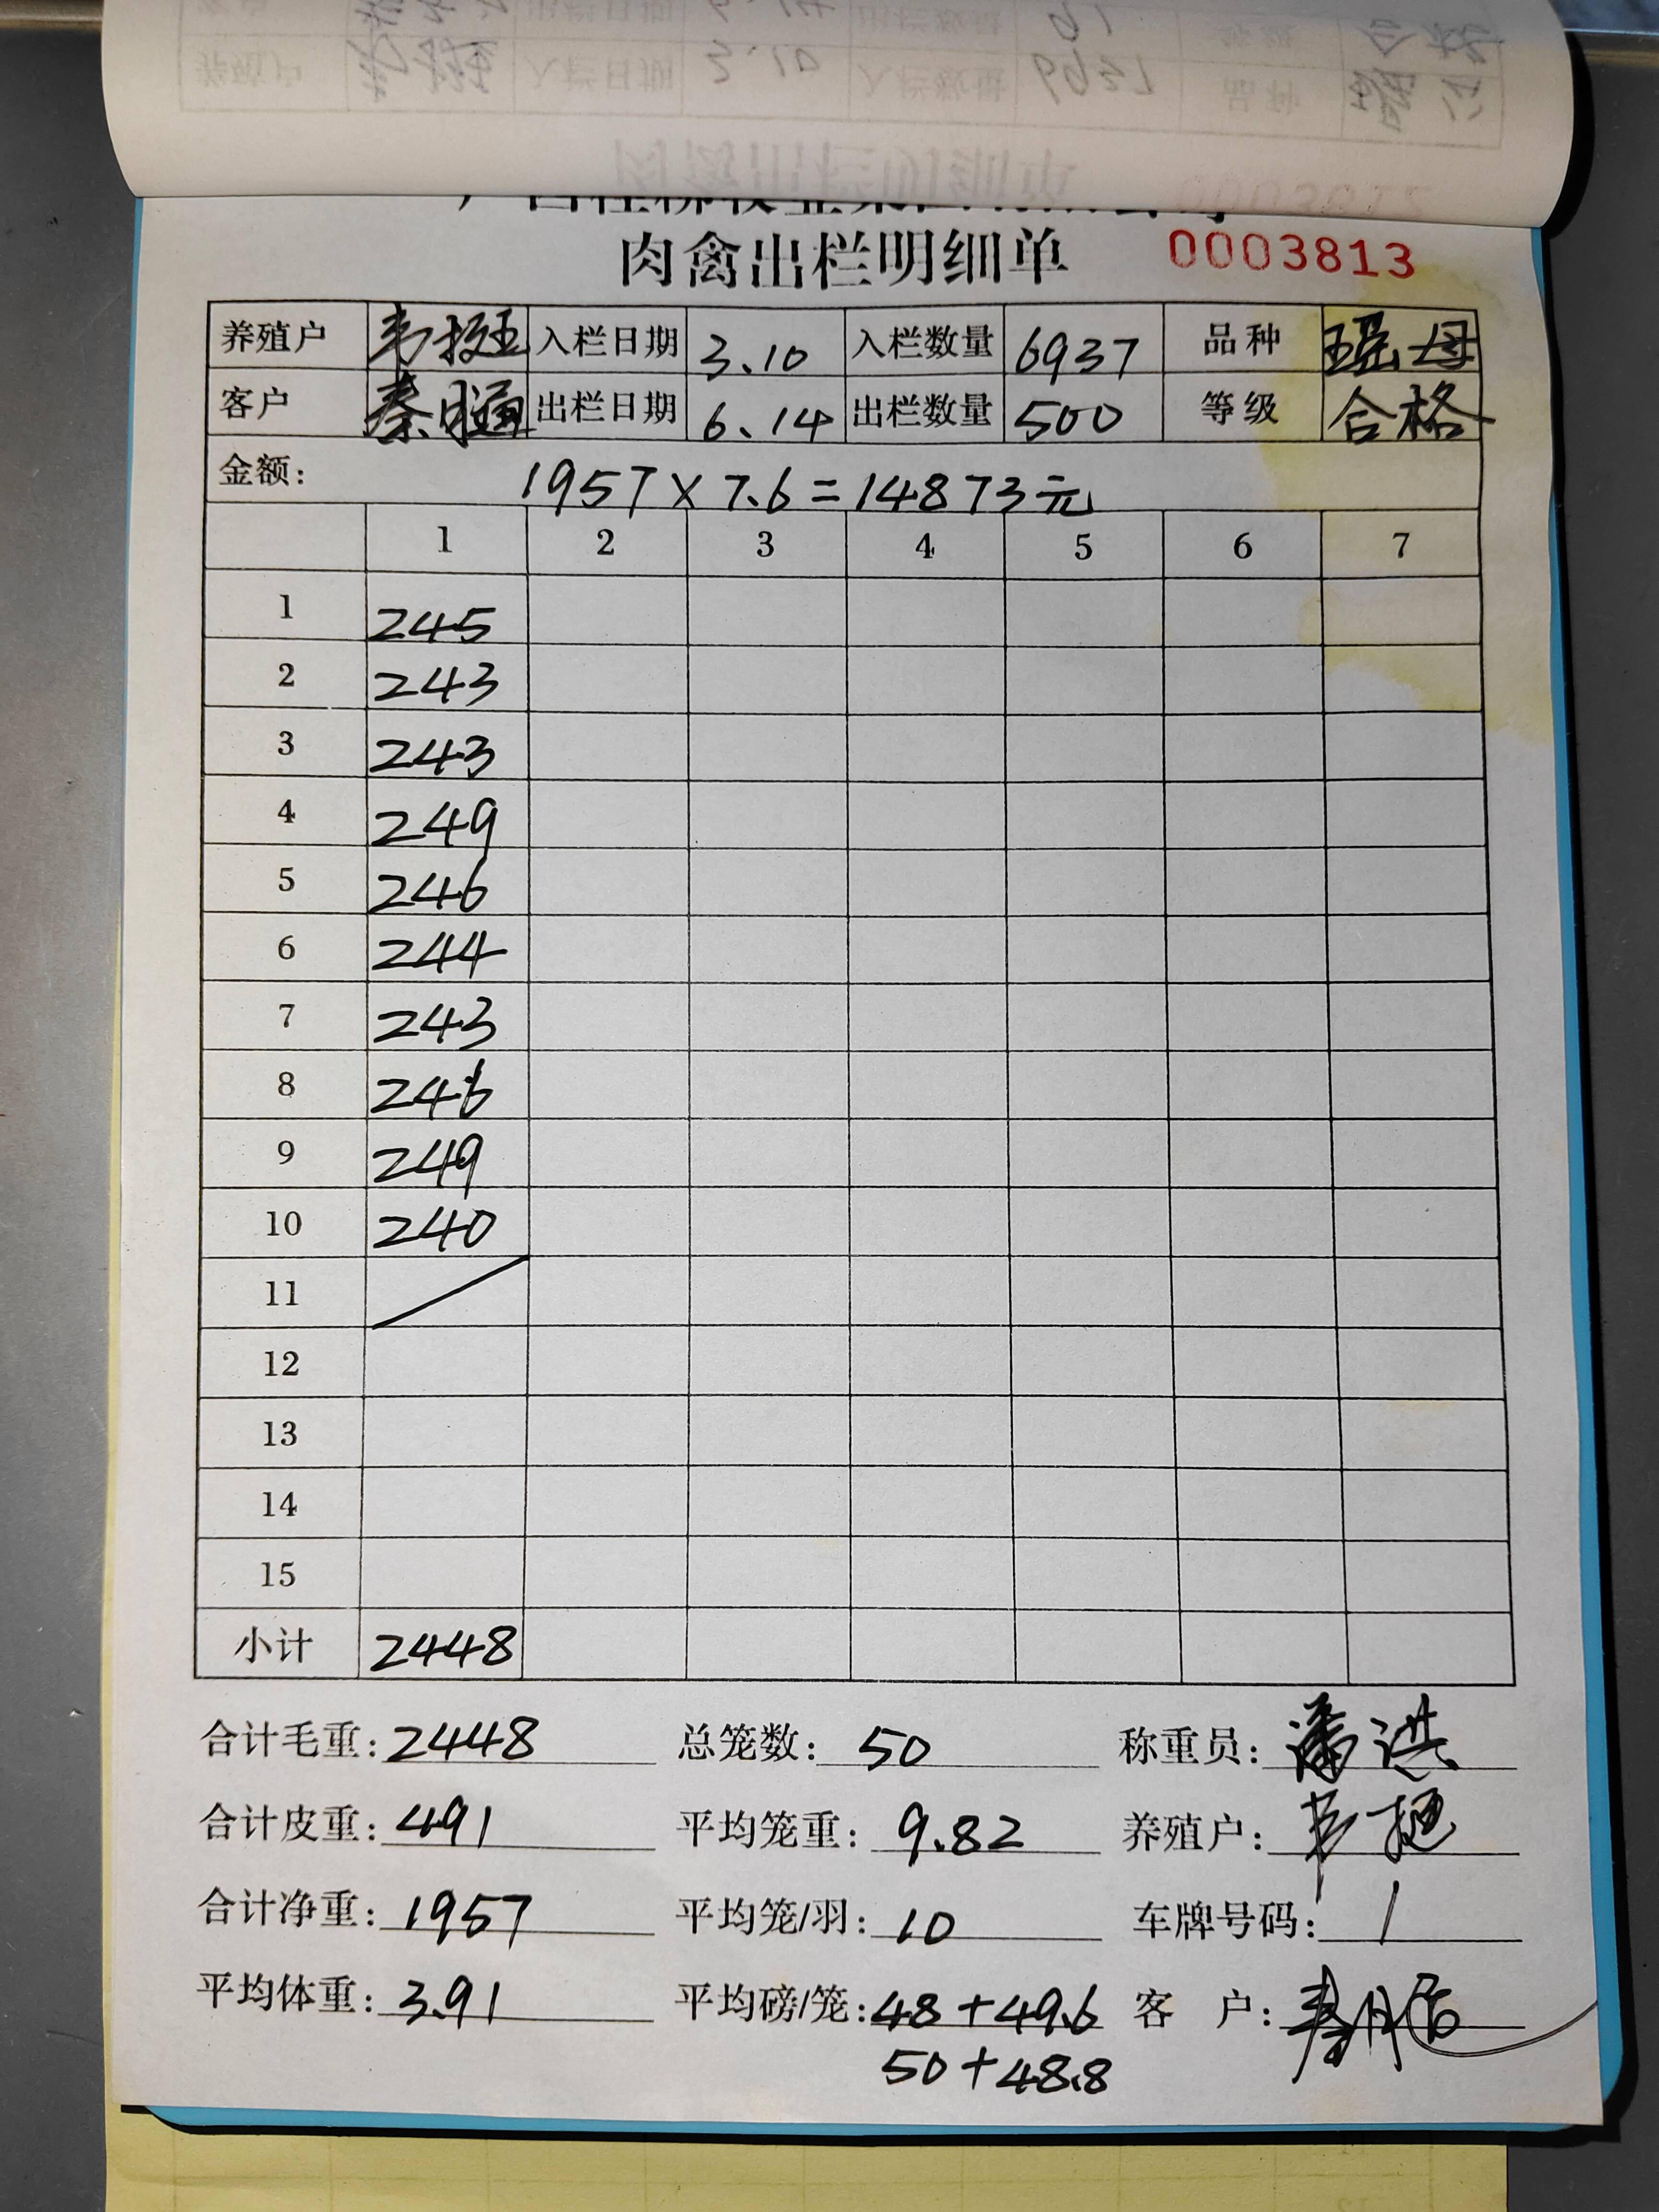 肉禽出栏明细单 0003813
养殖户 韦挺 入栏日期 3.10 入栏数量 6937 品种 瑶母
客户 秦 出栏日期 6.14 出栏数量 500 等级 合格
金额: 1957×7.6=14873元
1 2 3 4 5 6 7
1 245
2 243
3 243
4 249
5 246
6 244
7 243
8 246
9 249
10 240
11
12
13
14
15
小计 2448
合计毛重: 2448 总笼数: 50 称重员: 潘洪
合计皮重: 491 平均笼重: 9.82 养殖户: 韦挺
合计净重: 1957 平均笼/羽: 10 车牌号码: /
平均体重: 3.91 平均磅/笼: 48+49.6 客 户:
50+48.8